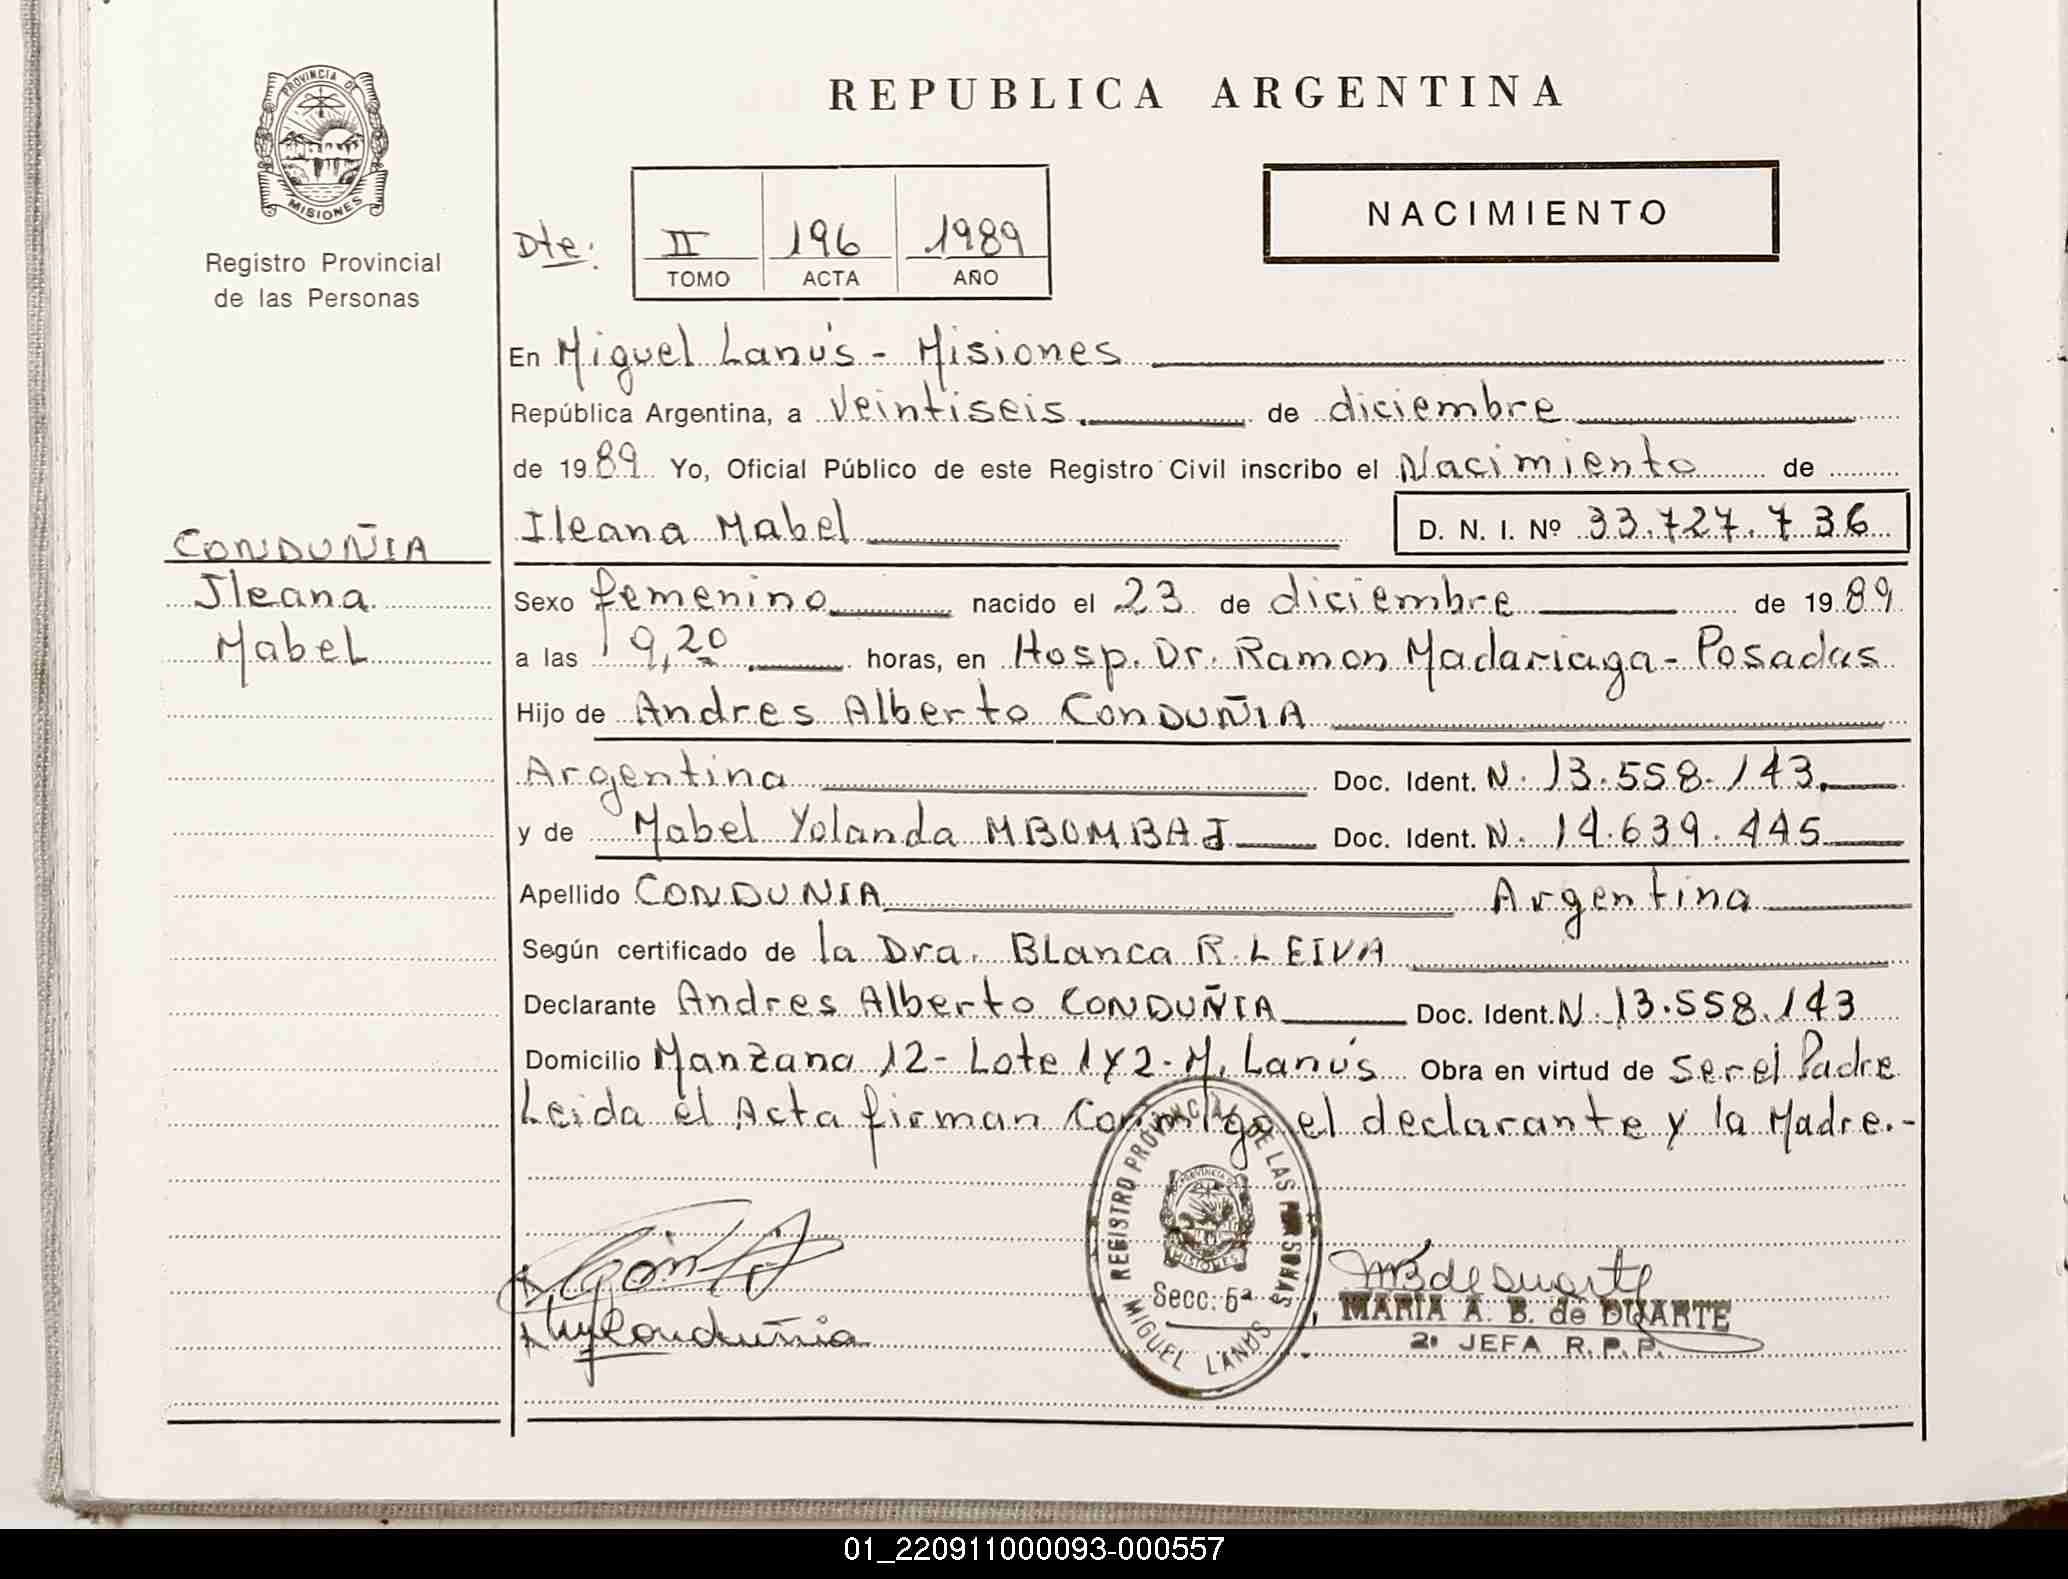 PROVINCIA DE
MISIONES
Registro Provincial
de las Personas
REPUBLICA ARGENTINA
NACIMIENTO
Dte: II 196 1989
TOMO ACTA AÑO
En Miguel Lanús - Misiones
República Argentina, a Veintiseis de diciembre
de 1989 Yo, Oficial Público de este Registro Civil inscribo el Nacimiento de
Ileana Mabel D. N. I. Nº 33.727.736
CONDUÑIA
Ileana
Mabel
Sexo femenino nacido el 23 de diciembre de 1989
a las 19,20 horas, en Hosp. Dr. Ramon Madariaga - Posadas
Hijo de Andres Alberto CONDUÑIA
Argentina Doc. Ident. N. 13.558.143.
y de Mabel Yolanda Doc. Ident. N. 14.639.445
Apellido CONDUNIA Argentina
Según certificado de la Dra. Blanca R. LEIVA
Declarante Andres Alberto CONDUÑIA Doc. Ident. N. 13.558.143
Domicilio Manzana 12 - Lote 1 y 2 - M. Lanús Obra en virtud de ser el Padre
Leida el Acta firman conmigo el declarante y la Madre.-
REGISTRO PROVINCIAL DE LAS PERSONAS
PROVINCIA DE
MISIONES
Secc. 5ª
MIGUEL LANUS
MBdeDuarte
MARIA A. B. de DUARTE
2ª JEFA R. P. P.
Conduñia
01_220911000093-000557